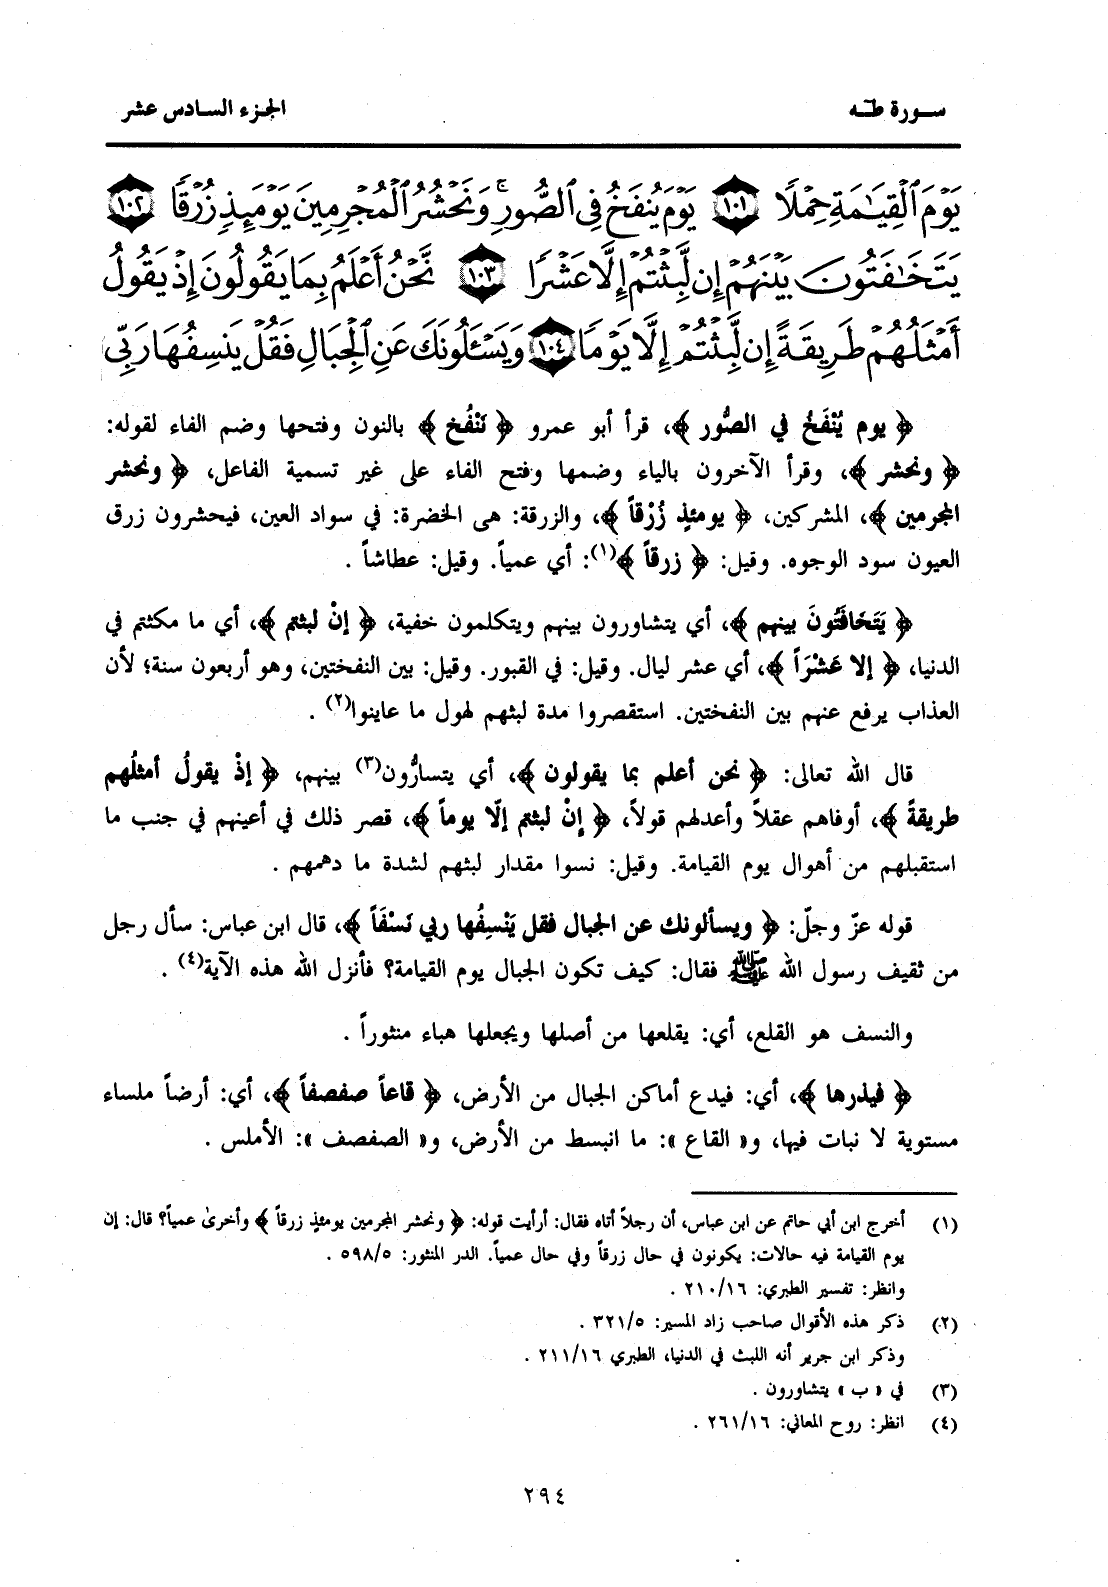 سورة طه
الجزء السادس عشر
يَوْمَ ٱلْقِيَٰمَةِ حِمْلًا ١٠١ يَوْمَ يُنفَخُ فِى ٱلصُّورِ ۚ وَنَحْشُرُ ٱلْمُجْرِمِينَ يَوْمَئِذٍ زُرْقًا ١٠٢
يَتَخَٰفَتُونَ بَيْنَهُمْ إِن لَّبِثْتُمْ إِلَّا عَشْرًا ١٠٣ نَّحْنُ أَعْلَمُ بِمَا يَقُولُونَ إِذْ يَقُولُ
أَمْثَلُهُمْ طَرِيقَةً إِن لَّبِثْتُمْ إِلَّا يَوْمًا ١٠٤ وَيَسْـَٔلُونَكَ عَنِ ٱلْجِبَالِ فَقُلْ يَنسِفُهَا رَبِّى
﴿ يوم يُنْفَخُ في الصُّور ﴾، قرأ أبو عمرو ﴿ نَنْفُخ ﴾ بالنون وفتحها وضم الفاء لقوله:
﴿ ونحشر ﴾، وقرأ الآخرون بالياء وضمها وفتح الفاء على غير تسمية الفاعل، ﴿ ونحشر
المجرمين ﴾، المشركين، ﴿ يومئذٍ زُرْقاً ﴾، والزرقة: هى الخضرة: في سواد العين، فيحشرون زرق
العيون سود الوجوه. وقيل: ﴿ زرقاً ﴾(١): أي عمياً. وقيل: عطاشاً .
﴿ يَتَخَافَتُونَ بينهم ﴾، أي يتشاورون بينهم ويتكلمون خفية، ﴿ إنْ لبثتم ﴾، أي ما مكثتم في
الدنيا، ﴿ إلا عَشْرَاً ﴾، أي عشر ليال. وقيل: في القبور. وقيل: بين النفختين، وهو أربعون سنة؛ لأن
العذاب يرفع عنهم بين النفختين. استقصروا مدة لبثهم لهول ما عاينوا(٢) .
قال الله تعالى: ﴿ نحن أعلم بما يقولون ﴾، أي يتسارُّون(٣) بينهم، ﴿ إذْ يقولُ أمثلُهم
طريقةً ﴾، أوفاهم عقلاً وأعدلهم قولاً، ﴿ إنْ لبثتم إلّا يوماً ﴾، قصر ذلك في أعينهم في جنب ما
استقبلهم من أهوال يوم القيامة. وقيل: نسوا مقدار لبثهم لشدة ما دهمهم .
قوله عزّ وجلّ: ﴿ ويسألونك عن الجبال فقل يَنْسِفُها ربي نَسْفَاً ﴾، قال ابن عباس: سأل رجل
من ثقيف رسول الله ﷺ فقال: كيف تكون الجبال يوم القيامة؟ فأنزل الله هذه الآية(٤) .
والنسف هو القلع، أي: يقلعها من أصلها ويجعلها هباء منثوراً .
﴿ فيذرها ﴾، أي: فيدع أماكن الجبال من الأرض، ﴿ قاعاً صفصفاً ﴾، أي: أرضاً ملساء
مستوية لا نبات فيها، و« القاع »: ما انبسط من الأرض، و« الصفصف »: الأملس .
(١) أخرج ابن أبي حاتم عن ابن عباس، أن رجلاً أتاه فقال: أرأيت قوله: ﴿ ونحشر المجرمين يومئذٍ زرقاً ﴾ وأخرىٰ عمياً؟ قال: إن
يوم القيامة فيه حالات: يكونون في حال زرقاً وفي حال عمياً. الدر المنثور: ٥٩٨/٥ .
وانظر: تفسير الطبري: ٢١٠/١٦ .
(٢) ذكر هذه الأقوال صاحب زاد المسير: ٣٢١/٥ .
وذكر ابن جرير أنه اللبث في الدنيا، الطبري ٢١١/١٦ .
(٣) في « ب » يتشاورون .
(٤) انظر: روح المعاني: ٢٦١/١٦ .
٢٩٤